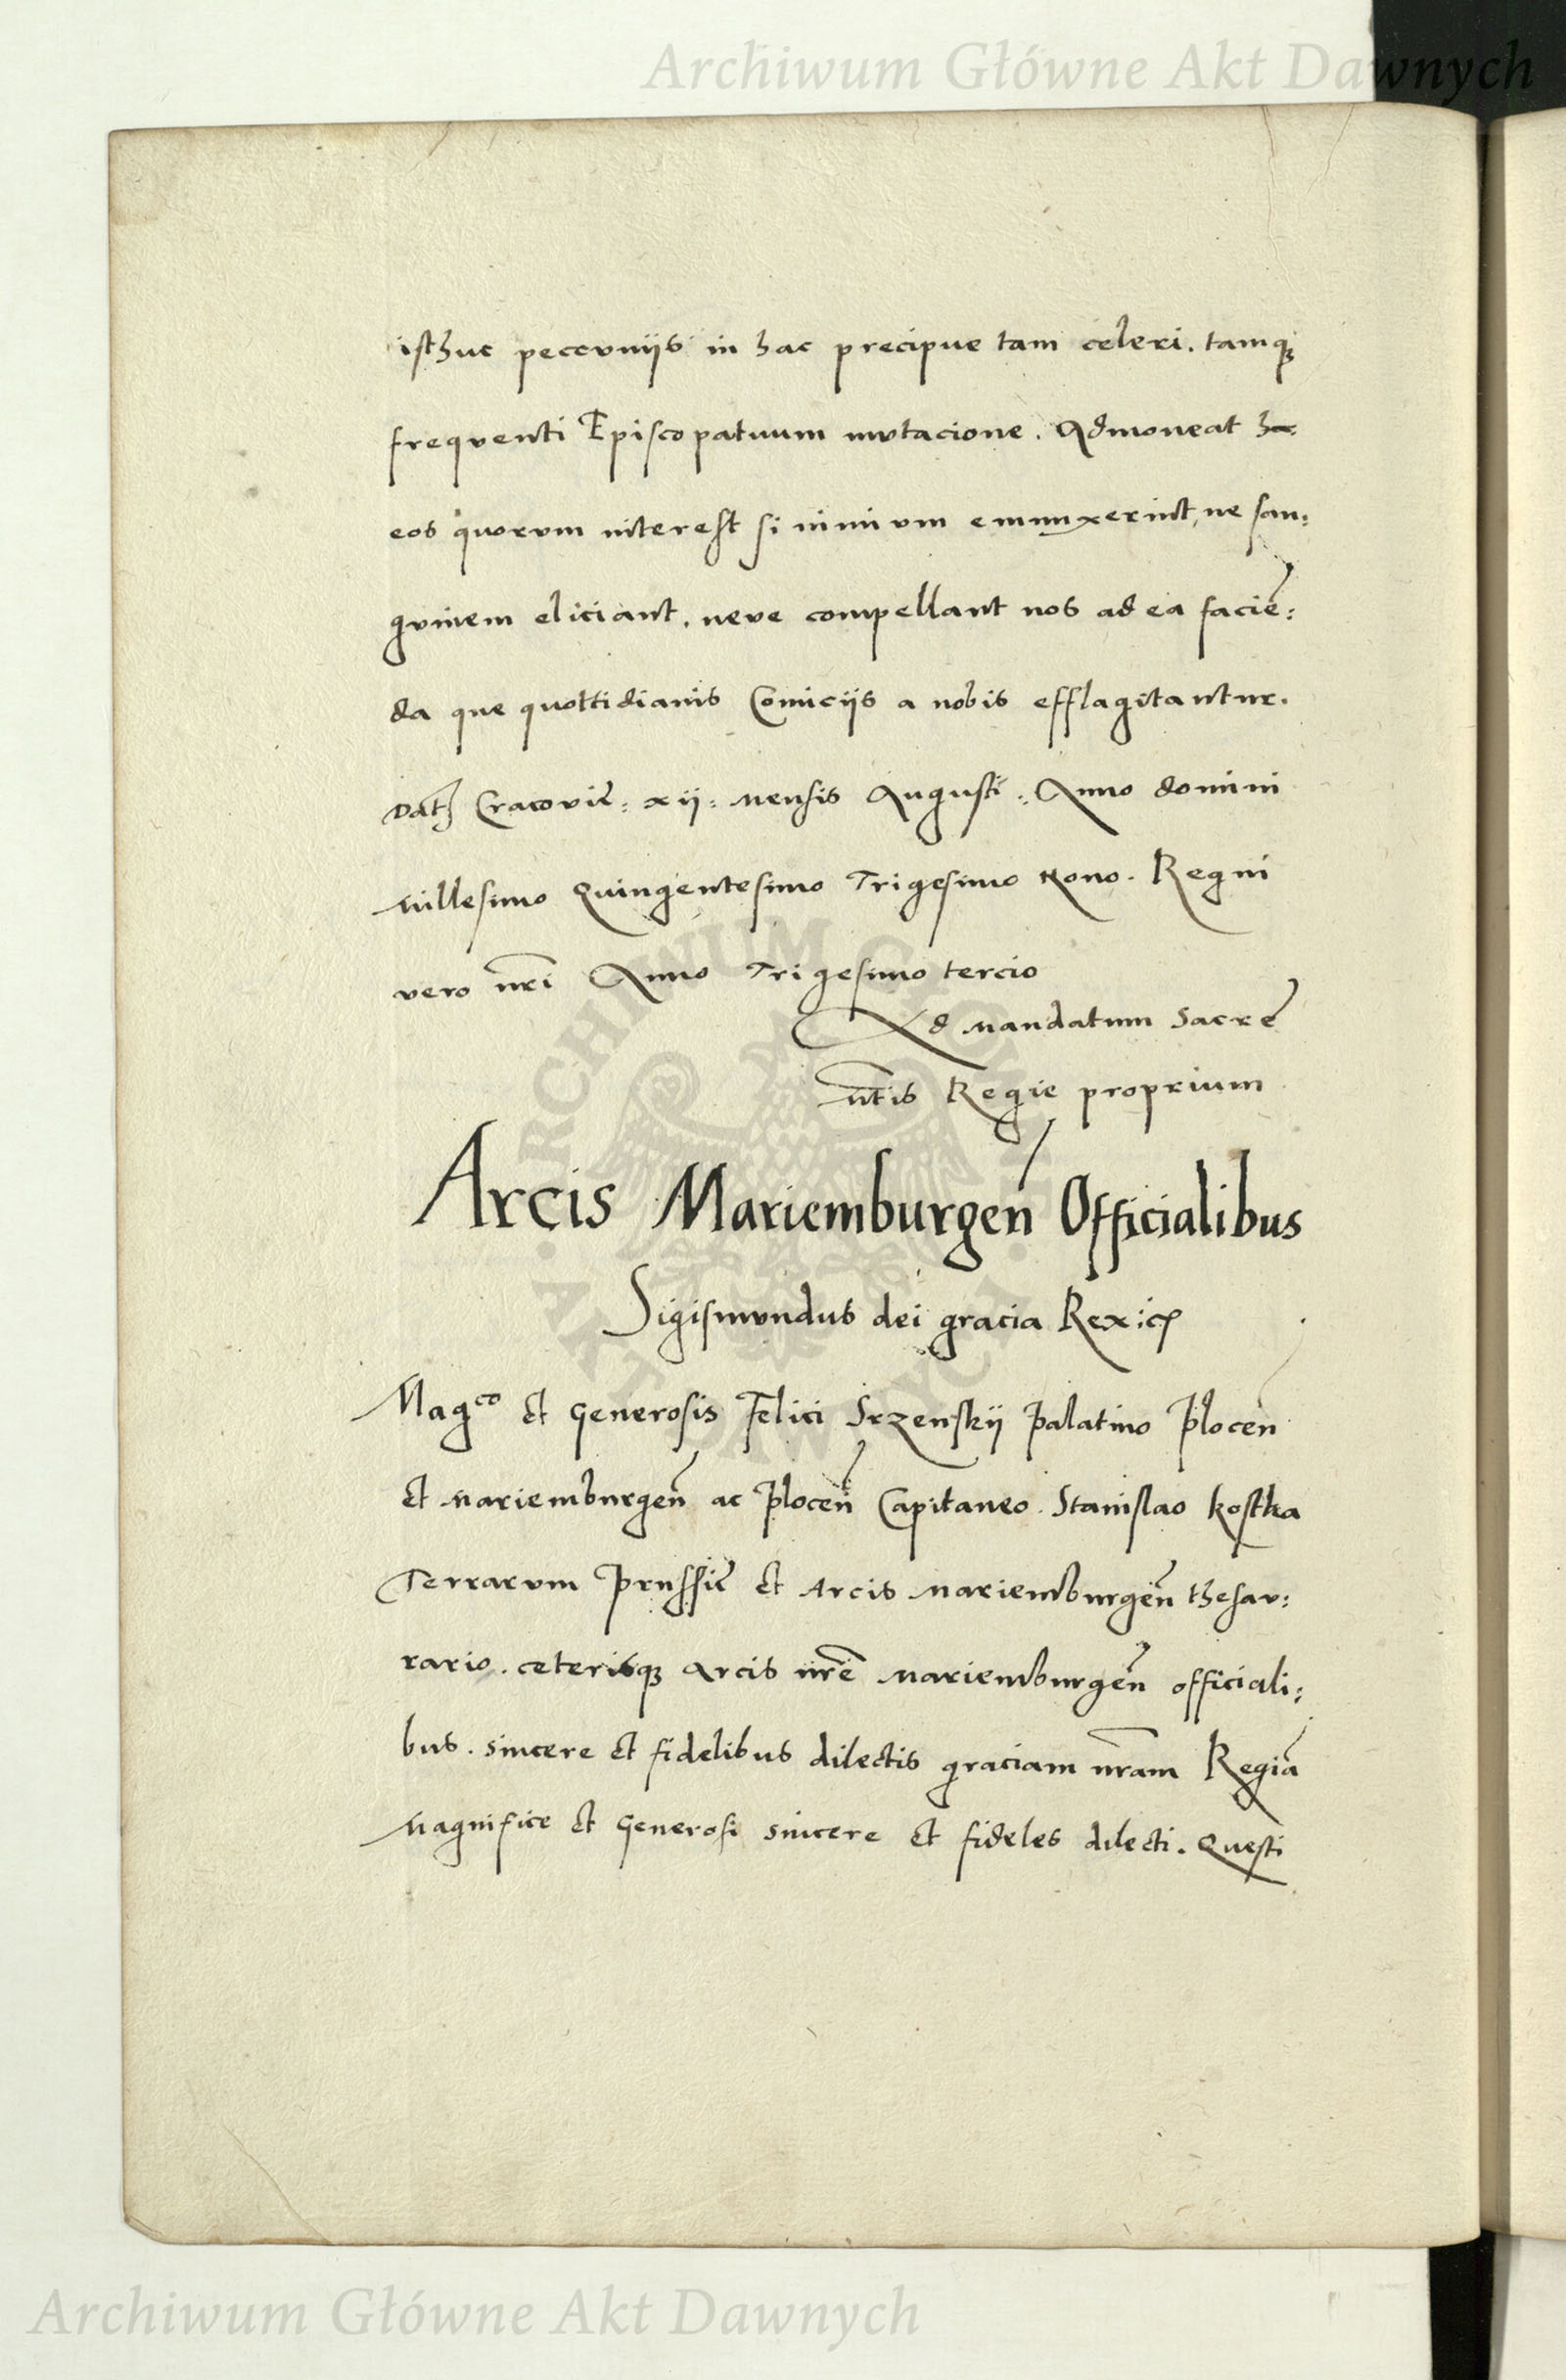 Archiwum Główne Akt Dawnych
isthuc peccuniis in hac precipue tam celeri. tamqꝫ
frequenti Episcopatuum mutacione. Admoneat
eos quorum interest si nimium emunxerint, ne san:
guinem eliciant. neve compellant nos ad ea faciē:
da que quottidianis Comiciis a nobis efflagitantur.
Datꝫ Cracovie: xii: Mensis Augusti: Anno domini
Millesimo Quingentesimo Trigesimo Nono. Regni
vero nr̄i Anno Trigesimo tercio
Ad Mandatum Sacre
mt̄is Regie proprium
Arcis Mariemburgen̄ Officialibus
Sigismundus dei gracia Rex :cꝭ
Magco et Generosis Felici Srzenskij Palatino Plocen̄
et Mariemburgen̄ ac Plocen̄ Capitaneo. Stanislao Kostka
Terrarum Prussie et Arcis Mariemburgen̄ thesau:
rario. ceterisqꝫ Arcis nr̄e Mariemburgen̄ officiali:
bus. sincere et fidelibus dilectis graciam nr̄am Regiā
Magnifice et Generosi sincere et fideles dilecti. Questi
ARCHIWUM GŁÓWNE AKT DAWNYCH
Archiwum Główne Akt Dawnych